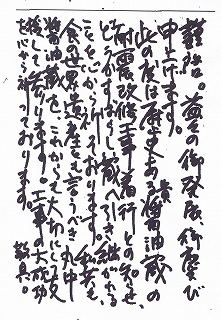 謹啓。益々の御発展、御慶び
申上げます。
此の度は歴史ある貴醤油蔵の
耐震改修工事着行との知らせ、
どうかすばらしい蔵へ引き継がれる
ことを心から祈っております。私共も、
食の世界遺産と言うべき丸中
醤油蔵を、これからも大切に支
援して参ります。工事の大成功
をお祈りしております。
敬具。